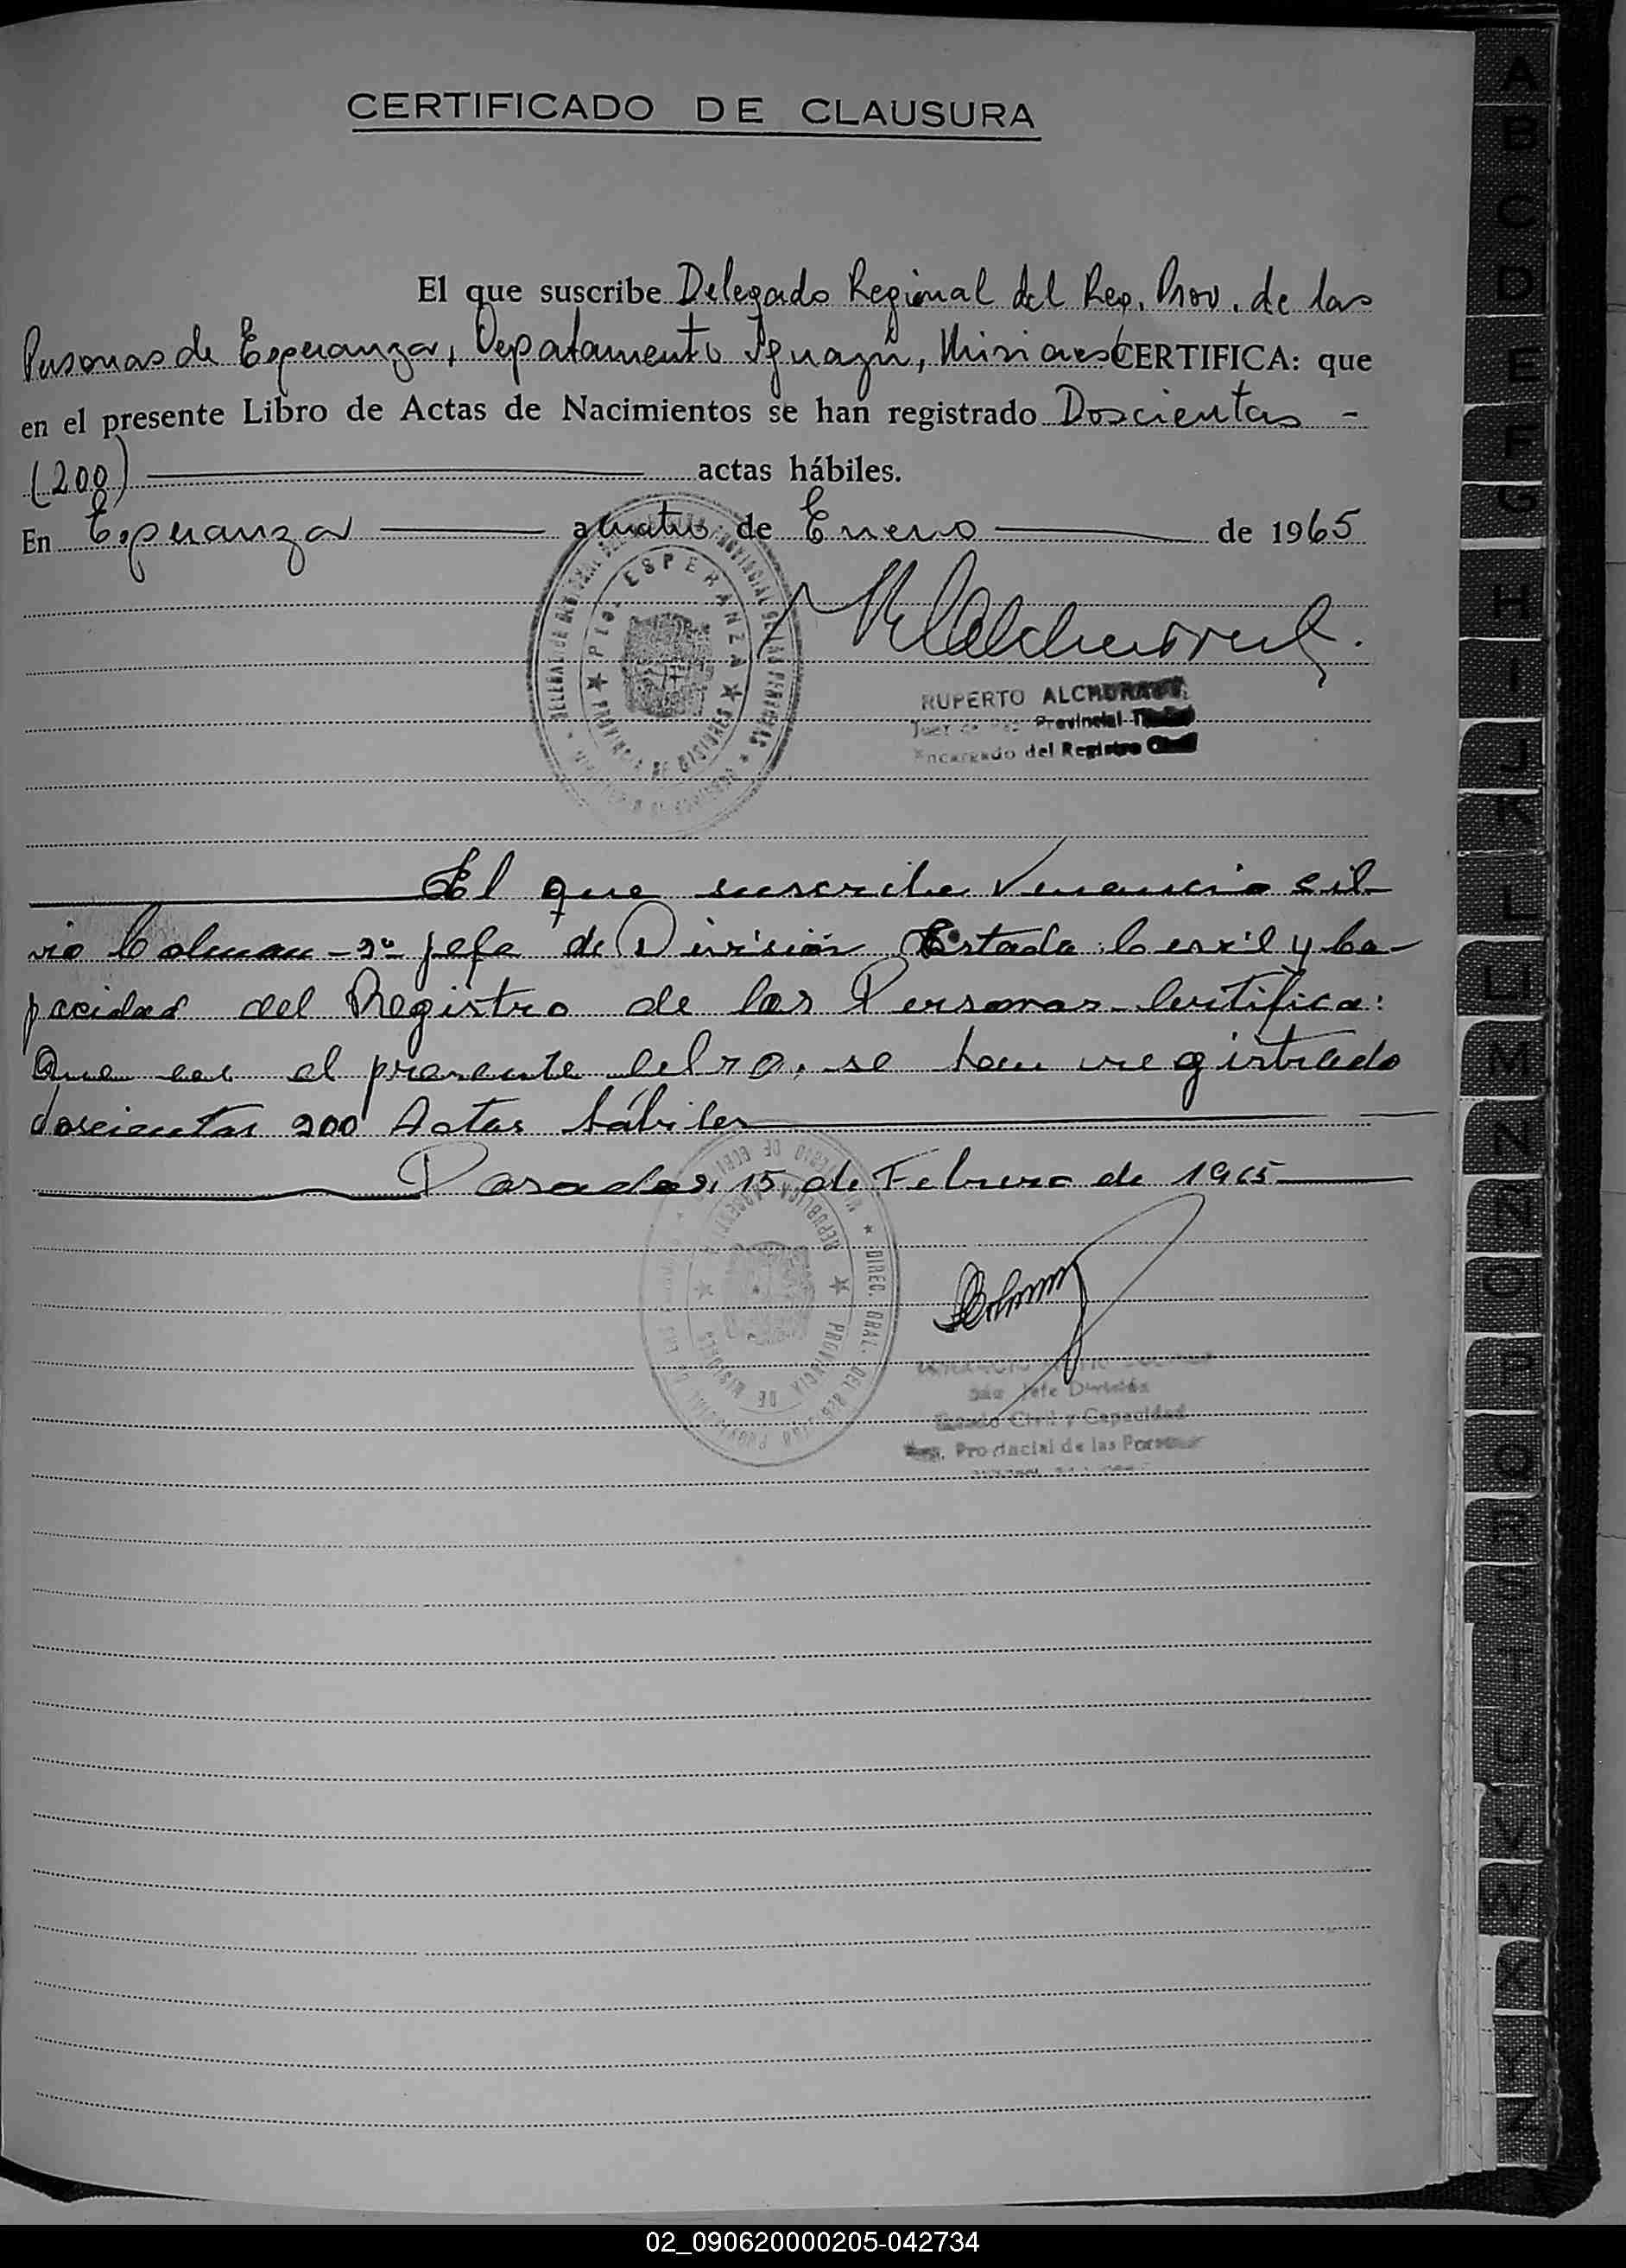 CERTIFICADO DE CLAUSURA
El que suscribe Delegado Regional del Reg. Prov. de las
Personas de Esperanza, Departamento Iguazú, Misiones CERTIFICA: que
en el presente Libro de Actas de Nacimientos se han registrado Doscientas -
(200) actas hábiles.
En Esperanza a cuatro de Enero de 1965
ESPERANZA
PROVINCIA DE MISIONES
RUPERTO
Juez de Paz Provincial
Encargado del Registro Civil
El que suscribe Venancio Sil-
vio Colman - 2º Jefe de División Estado Civil y Ca-
pacidad del Registro de las Personas Certifica:
Que en el presente libro, se han registrado
doscientas 200 Actas hábiles
Posadas, 15 de Febrero de 1965
REPUBLICA ARGENTINA
PROVINCIA DE MISIONES
DIREC. GRAL. DEL REGISTRO PROVINCIAL
2do. Jefe División
Estado Civil y Capacidad
Reg. Provincial de las Personas
A
B
C
D
E
F
G
H
I
J
K
L
LL
M
N
Ñ
O
P
Q
R
S
T
U
V
W
X
Y
Z
02_090620000205-042734